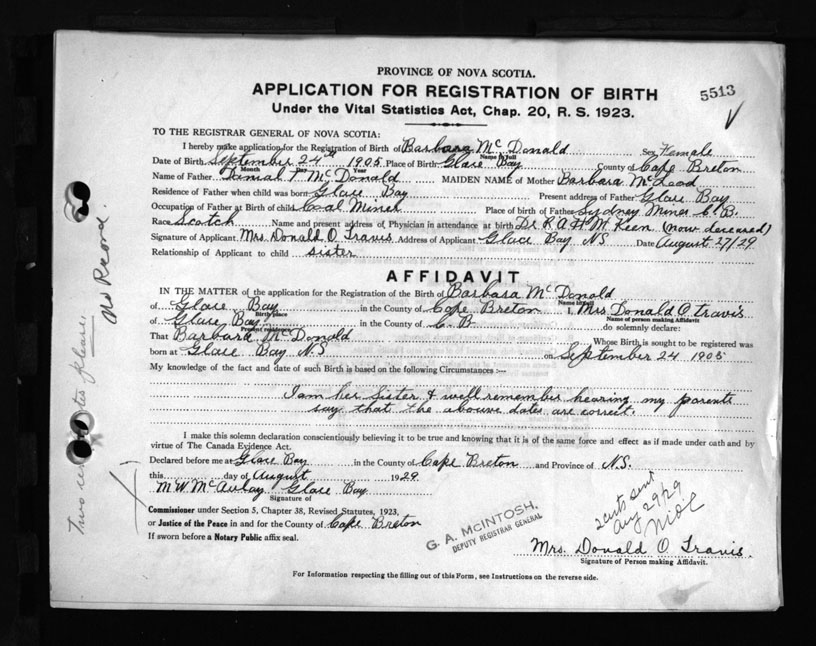 PROVINCE OF NOVA SCOTIA.
APPLICATION FOR REGISTRATION OF BIRTH
5513
Under the Vital Statistics Act, Chap. 20, R. S. 1923.
TO THE REGISTRAR GENERAL OF NOVA SCOTIA:
I hereby make application for the Registration of Birth of Barbara McDonald Sex Female
Name in full
Date of Birth September 24th 1905 Place of Birth Glace Bay County of Cape Breton
Month Day Year
Name of Father McDonald MAIDEN NAME of Mother Barbara McLeod
Residence of Father when child was born Glace Bay Present address of Father Glace Bay
Occupation of Father at Birth of child Coal Miner Place of birth of Father Sydney Mines C.B.
Race Scotch Name and present address of Physician in attendance at birth Dr. R A H McKeen (now deceased)
Signature of Applicant Mrs Donald O. Travis Address of Applicant Glace Bay N S Date August 27/29
Relationship of Applicant to child sister
AFFIDAVIT
IN THE MATTER of the application for the Registration of the Birth of Barbara McDonald
Name in full
of Glace Bay in the County of Cape Breton I, Mrs Donald O. Travis
Birth place Name of person making Affidavit
of Glace Bay in the County of C B do solemnly declare:
Present residence
That Barbara McDonald Whose Birth is sought to be registered was
born at Glace Bay N.S on September 24 1905
My knowledge of the fact and date of such Birth is based on the following Circumstances :—
I am her sister & well remember hearing my parents
say that the abouve dates are correct.
I make this solemn declaration conscientiously believing it to be true and knowing that it is of the same force and effect as if made under oath and by
virtue of The Canada Evidence Act.
Declared before me at Glace Bay in the County of Cape Breton and Province of N.S.
this day of August 1929
M W McAulay Glace Bay
Signature of
Commissioner under Section 5, Chapter 38, Revised Statutes, 1923,
or Justice of the Peace in and for the County of Cape Breton
If sworn before a Notary Public affix seal.
G. A. McINTOSH,
DEPUTY REGISTRAR GENERAL
2 certs sent
Aug 29/29
Mrs. Donald O. Travis.
Signature of Person making Affidavit.
For Information respecting the filling out of this Form, see Instructions on the reverse side.
No Record.
Two please.